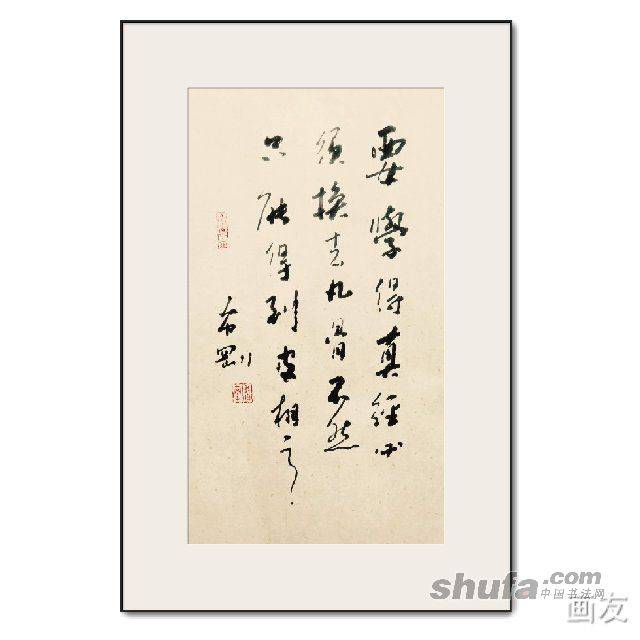 要學得真經必
須換去凡骨不然
只能得到皮相之
右剛
shufa.com
中国书法网
画友